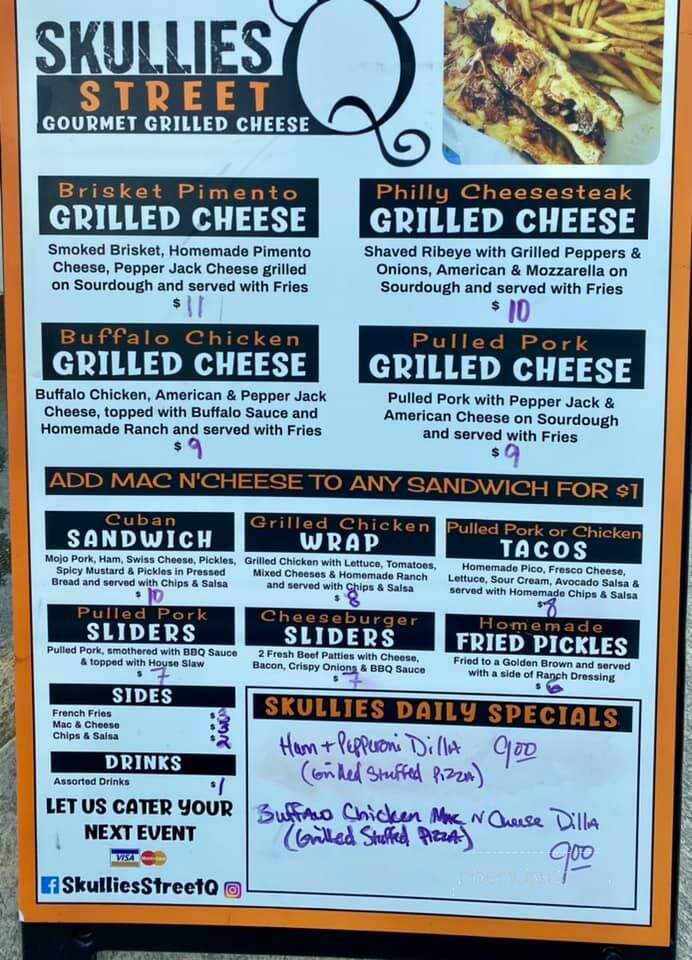 SKULLIES
STREET
Q
GOURMET GRILLED CHEESE
Brisket Pimento
GRILLED CHEESE
Smoked Brisket, Homemade Pimento
Cheese, Pepper Jack Cheese grilled
on Sourdough and served with Fries
$ 11
Philly Cheesesteak
GRILLED CHEESE
Shaved Ribeye with Grilled Peppers &
Onions, American & Mozzarella on
Sourdough and served with Fries
$ 10
Buffalo Chicken
GRILLED CHEESE
Buffalo Chicken, American & Pepper Jack
Cheese, topped with Buffalo Sauce and
Homemade Ranch and served with Fries
$ 9
Pulled Pork
GRILLED CHEESE
Pulled Pork with Pepper Jack &
American Cheese on Sourdough
and served with Fries
$ 9
ADD MAC N'CHEESE TO ANY SANDWICH FOR $1
Cuban
SANDWICH
Mojo Pork, Ham, Swiss Cheese, Pickles,
Spicy Mustard & Pickles in Pressed
Bread and served with Chips & Salsa
$ 10
Grilled Chicken
WRAP
Grilled Chicken with Lettuce, Tomatoes,
Mixed Cheeses & Homemade Ranch
and served with Chips & Salsa
$ 8
Pulled Pork or Chicken
TACOS
Homemade Pico, Fresco Cheese,
Lettuce, Sour Cream, Avocado Salsa &
served with Homemade Chips & Salsa
$ 8
Pulled Pork
SLIDERS
Pulled Pork, smothered with BBQ Sauce
& topped with House Slaw
$ 7
Cheeseburger
SLIDERS
2 Fresh Beef Patties with Cheese,
Bacon, Crispy Onions & BBQ Sauce
$ 7
Homemade
FRIED PICKLES
Fried to a Golden Brown and served
with a side of Ranch Dressing
$ 6
SIDES
French Fries $
Mac & Cheese $ 3
Chips & Salsa $ 2
DRINKS
Assorted Drinks $ 1
LET US CATER YOUR
NEXT EVENT
VISA
SkulliesStreetQ
SKULLIES DAILY SPECIALS
Ham + Pepperoni Dilla 9.00
(Grilled Stuffed Pizza)
Buffalo Chicken Mac N Cheese Dilla
(Grilled Stuffed Pizza)
9.00